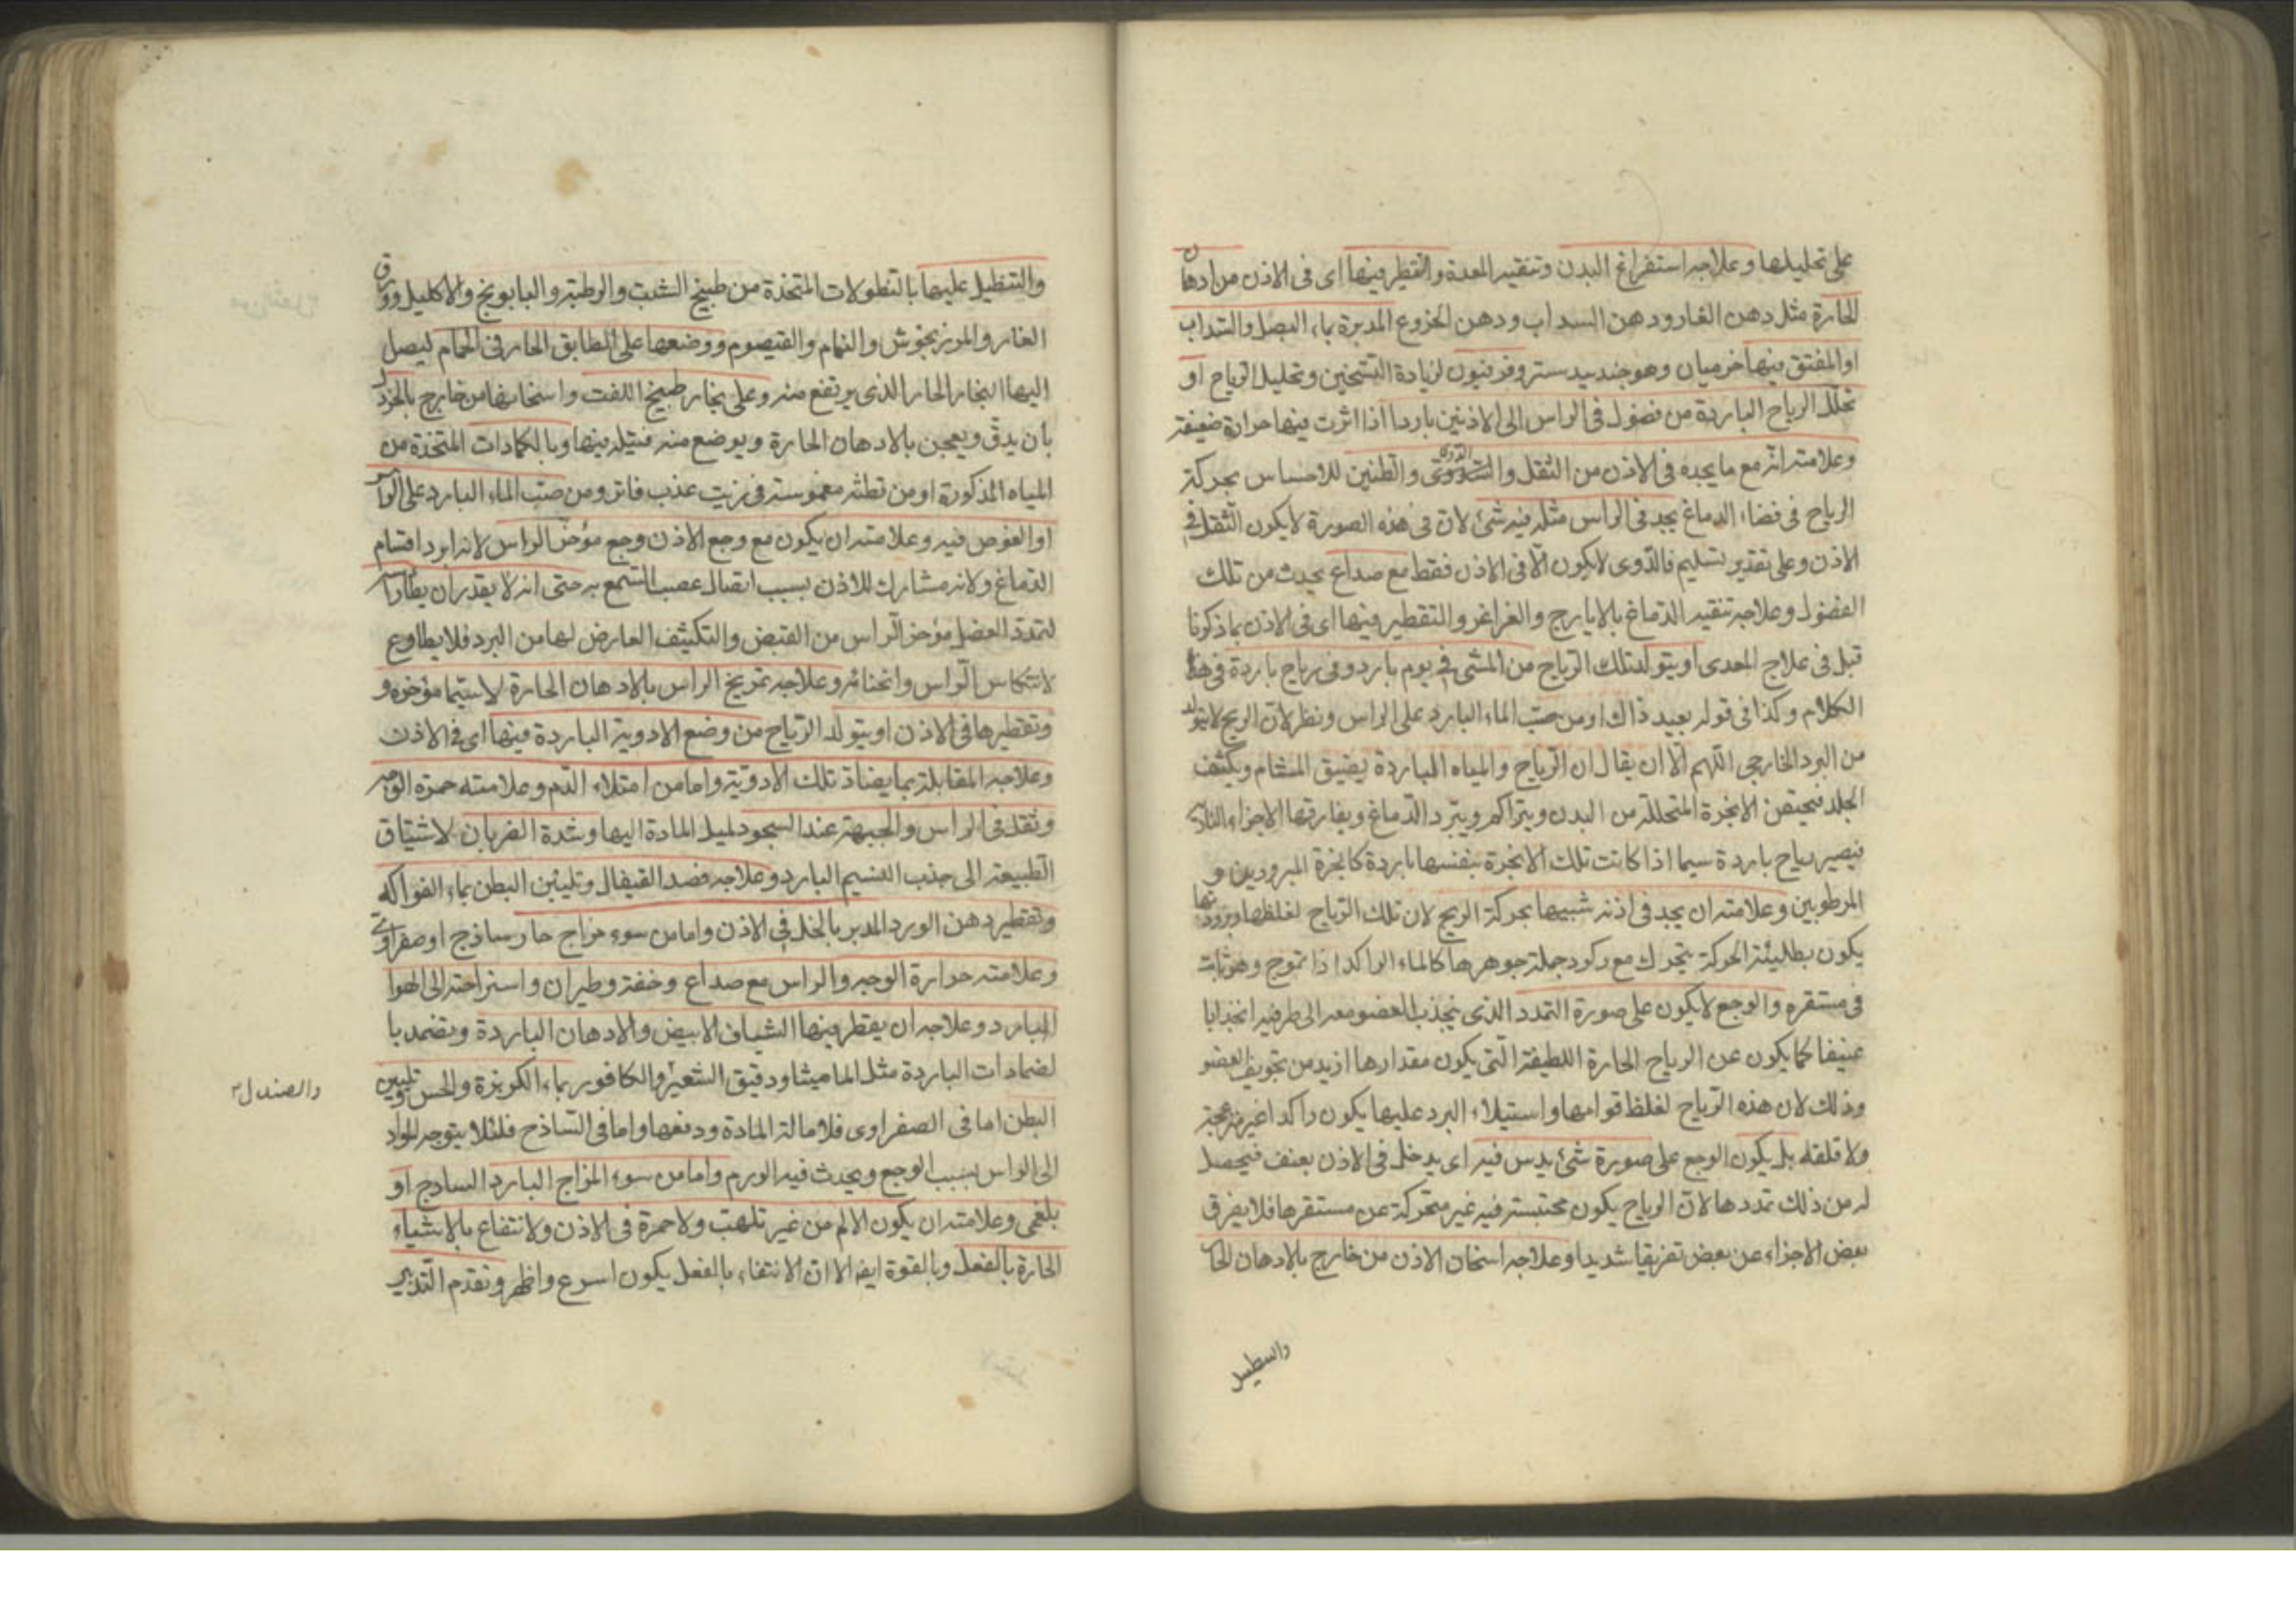 على تحليلها وعلاجه استفراغ البدن وتنقيه المعدة والتقطير فيها اى فى الاذن من ادهان
الحارة مثل دهن الغار ودهن السداب ودهن الخروع المدبرة بماء البصل والسداب
او المفتق فيها خرميان وهو جندبيدستر وفرفيون لزيادة التسخين وتحليل الرياح او
تحلل الرياح الباردة من فضول فى الراس الى الاذنين باردا اذا اثرت فيها حرارة ضعيفة
وعلامته انه مع ما يجده فى الاذن من الثقل والدوى والطنين للاحساس بحركة
الرياح فى فضاء الدماغ يجد فى الراس مثله فيه شئ لان فى هذه الصورة لا يكون الثقل فى
الاذن وعلى تقدير تسليم فالدوى لا يكون الا فى الاذن فقط مع صداع يحدث من تلك
الفضول وعلاجه تنقيه الدماغ بالايارج والغراغر والتقطير فيها اى فى الاذن بما ذكرنا
قبل فى علاج المعدى او يتولد تلك الرياح من المشى فى يوم بارد وفى رياح باردة فى هذا
الكلام وكذا فى قوله بعيد ذاك او من صب الماء البارد على الراس ونظر لان الريح لا يتولد
من البرد الخارجى اللهم الا ان يقال ان الرياح والمياه الباردة يضيق المشام ويكثف
الجلد فيحتقن الابخرة المتحللة من البدن ويتراكم ويبرد الدماغ ويفارقها الاجزاء النارية
فيصير رياح باردة سيما اذا كانت تلك الابخرة بنفسها باردة كابخرة المبرودين و
المرطوبين وعلامته ان يجد فى اذنه شبيها بحركة الريح لان تلك الرياح لغلظها وبرودتها
يكون بطليئة الحركة يتحرك مع ركود جملة جوهرها كالماء الراكد اذا تموج وهو ثابت
فى مستقره والوجع لا يكون على صورة التمدد الذى ينجذب العضو معه الى طرفيه انجذابا
عنيفا كما يكون عن الرياح الحارة اللطيفة التى يكون مقدارها ازيد من تجويف العضو
وذلك لان هذه الرياح لغلظ قوامها واستيلاء البرد عليها يكون راكدا غير مزعجة
ولا قلقه بل يكون الوجع على صورة شئ يدس فيه اى يدخل فى الاذن بعنف فيحصل
له من ذلك تمددها لان الرياح يكون محتبسة فيه غير متحركة عن مستقرها فلا يفرق
بعض الاجزاء عن بعض تفريقا شديدا وعلاجه اسخان الاذن من خارج بالادهان الحا
والتنطيل عليها بالنطولات المتخذة من طبيخ الشبت والرطبة والبابونج والاكليل وورق
الغار والمرزنجوش والنمام والقيصوم ووضعها على الطابق الحار فى الحمام ليصل
اليها البخار الحار الذى يرتفع منه وعلى بخار طبيخ اللفت واسخانها من خارج بالخردل
بان يدق ويعجن بالادهان الحارة ويوضع منه فتيله فيها وبالكمادات المتخذة من
المياه المذكورة او من قطنه مغموسة فى زيت عذب فاتر ومن صب الماء البارد على الراس
او الغوص فيه وعلامته ان يكون مع وجع الاذن وجع مؤخر الراس لانه ابرد اقسام
الدماغ ولانه مشارك للاذن بسبب اتصال عصب السمع به حتى انه لا يقدر ان يطاراسه
لتمدد العضل مؤخر الراس من القبض والتكثيف العارض لها من البرد فلا يطاوع
لانتكاس الراس وانحنائه وعلاجه تمريخ الراس بالادهان الحارة لاسيما مؤخره و
وتقطيرها فى الاذن او يتولد الرياح من وضع الادوية الباردة فيها اى فى الاذن
وعلاجه المقابلة بما يضاد تلك الادوية واما من امتلاء الدم وعلامته حمرة الوجه
وثقل فى الراس والجبهة عند السجود لميل المادة اليها وشدة الضربان لاشتياق
الطبيعة الى جذب النسيم البارد وعلاجه فصد القيفال وتليين البطن بماء الفواكه
وتقطير دهن الورد المدبر بالخل فى الاذن واما من سوء مزاج حار ساذج او صفراوى
وعلامته حرارة الوجه والراس مع صداع وخفة وطيران واستراحته الى الهوا
البارد وعلاجه ان يقطر فيها الشياف الابيض والادهان الباردة ويضمد با
لضمادات الباردة مثل الماميثا ودقيق الشعير والكافور بماء الكزبرة والخس وتليين
والصندل
البطن اما فى الصفراوى فلامالة المادة ودفعها واما فى الساذج فلئلا يتوجه المواد
الى الراس بسبب الوجع ويحدث فيه الورم واما من سوء المزاج البارد الساذج او
بلغمى وعلامته ان يكون الالم من غير تلهب ولا حمرة فى الاذن ولانتفاع بالاشياء
الحارة بالفعل وبالقوة ايضا الا ان الانتفاء بالفعل يكون اسرع واظهر وتقدم التدبير